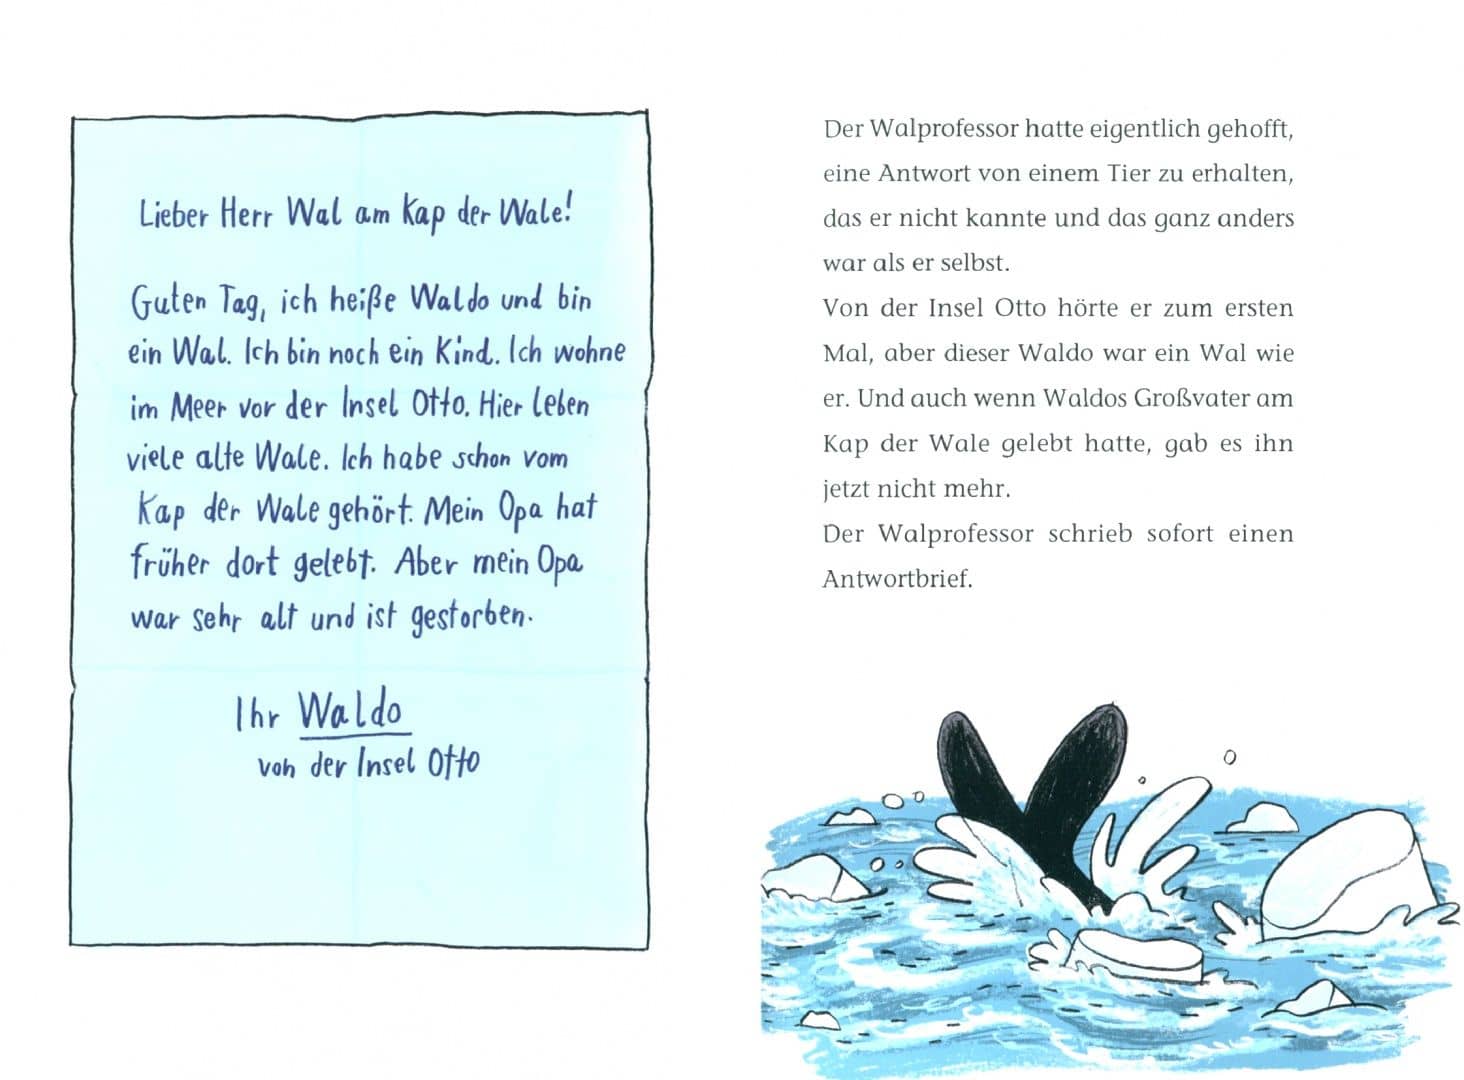 Lieber Herr Wal am Kap der Wale!
Guten Tag, ich heiße Waldo und bin
ein Wal. Ich bin noch ein Kind. Ich wohne
im Meer vor der Insel Otto. Hier leben
viele alte Wale. Ich habe schon vom
Kap der Wale gehört. Mein Opa hat
früher dort gelebt. Aber mein Opa
war sehr alt und ist gestorben.
Ihr Waldo
von der Insel Otto
Der Walprofessor hatte eigentlich gehofft,
eine Antwort von einem Tier zu erhalten,
das er nicht kannte und das ganz anders
war als er selbst.
Von der Insel Otto hörte er zum ersten
Mal, aber dieser Waldo war ein Wal wie
er. Und auch wenn Waldos Großvater am
Kap der Wale gelebt hatte, gab es ihn
jetzt nicht mehr.
Der Walprofessor schrieb sofort einen
Antwortbrief.